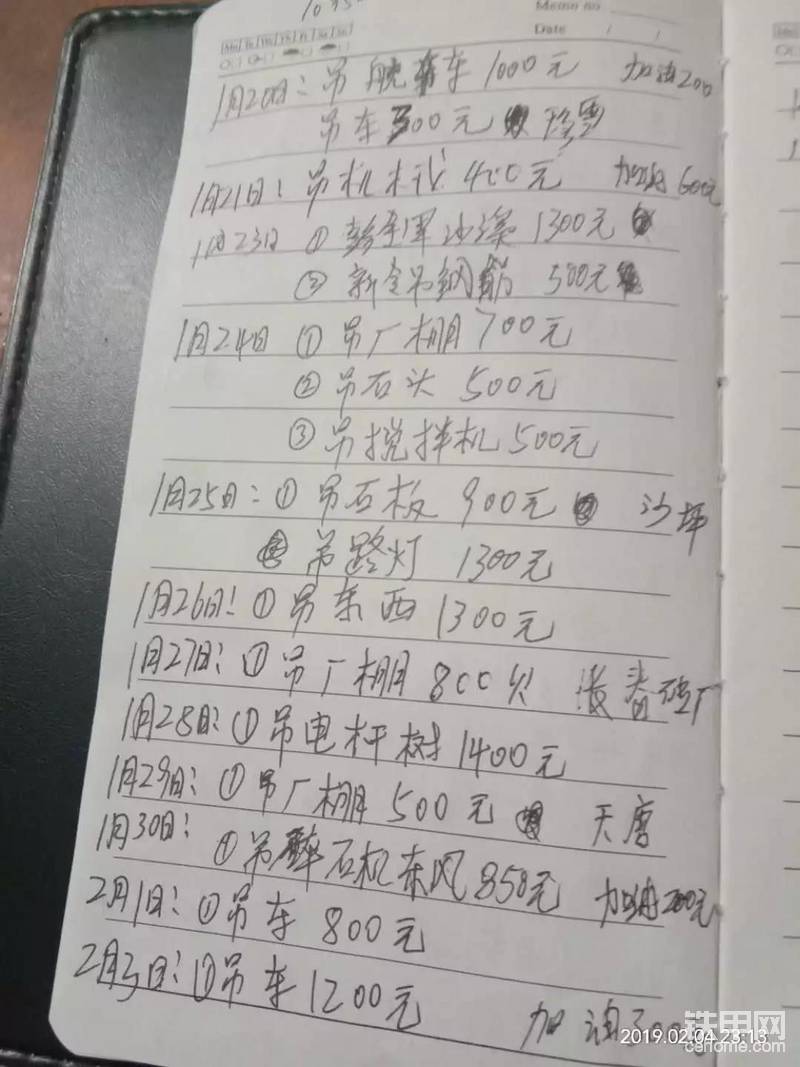 Memo no
Date / /
Mo Tu We Th Fr Sa Su
1月20日：吊 车 1000元 加油200
吊车 300元
1月21日：吊机械 400元 加油600元
1月23日 ① 沙漠 1300元
② 新 吊钢筋 500元
1月24日 ① 吊厂棚 700元
② 吊石头 500元
③ 吊搅拌机 500元
1月25日：① 吊石板 900元 沙坪
② 吊路灯 1300元
1月26日：① 吊东西 1300元
1月27日：① 吊厂棚 800 厂
1月28日：① 吊电杆树 1400元
1月29日：① 吊厂棚 500元 天唐
1月30日：① 吊碎石机东风 850元 加油200元
2月1日：① 吊车 800元
2月3日：① 吊车 1200元
加油300
铁甲网
cehome.com
2019.02.04 23:13